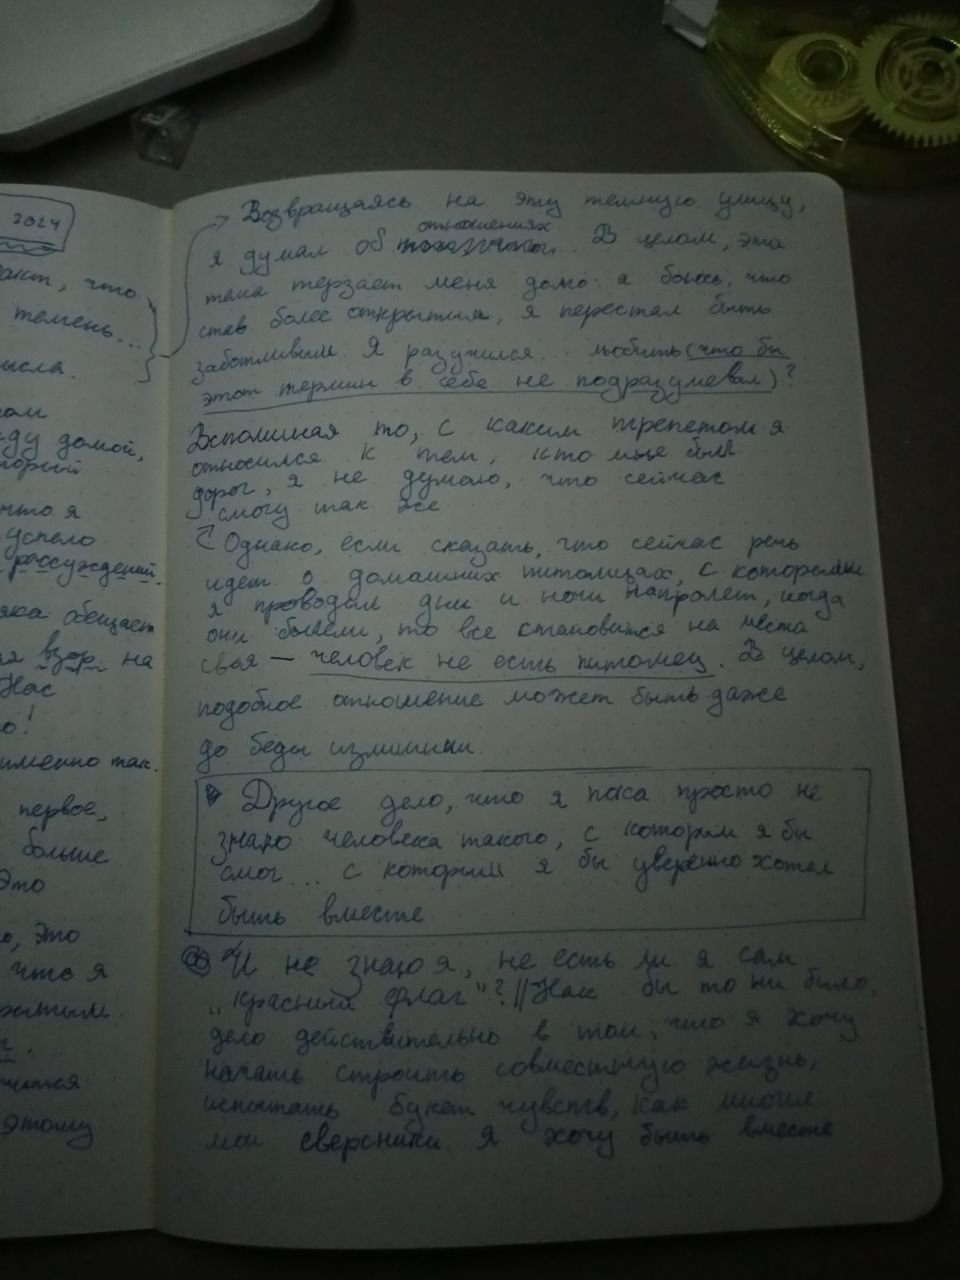 2024
акт, что
темень...
мысла.
ом
ду домой,
торый
что я
успело
рассуждений.
яка обещает
взор на
Нас
о!
именно так.
первое,
больше
Это
о, это
что я
рытым.
г.
чится
этому
Возвращаясь на эту темную улицу,
отношениях
я думал об ... В целом, эта
тема терзает меня давно: я боюсь, что
став более открытым, я перестал быть
заботливым. Я разучился... любить (что бы
этот термин в себе не подразумевал)?
Вспоминая то, с каким трепетом я
относился к тем, кто мне был
дорог, я не думаю, что сейчас
смогу так же
Однако, если сказать, что сейчас речь
идет о домашних питомцах, с которыми
я проводил дни и ночи напролет, когда
они болели, то все становится на места
своя — человек не есть питомец. В целом,
подобное отношение может быть даже
до беды излишним
Другое дело, что я пока просто не
знаю человека такого, с которым я бы
смог... с которым я бы уверенно хотел
быть вместе
И не знаю я, не есть ли я сам
„красный флаг"? // Как бы то ни было,
дело действительно в том, что я хочу
начать строить совместную жизнь,
испытать букет чувств, как многие
мои сверсники. Я хочу быть вместе